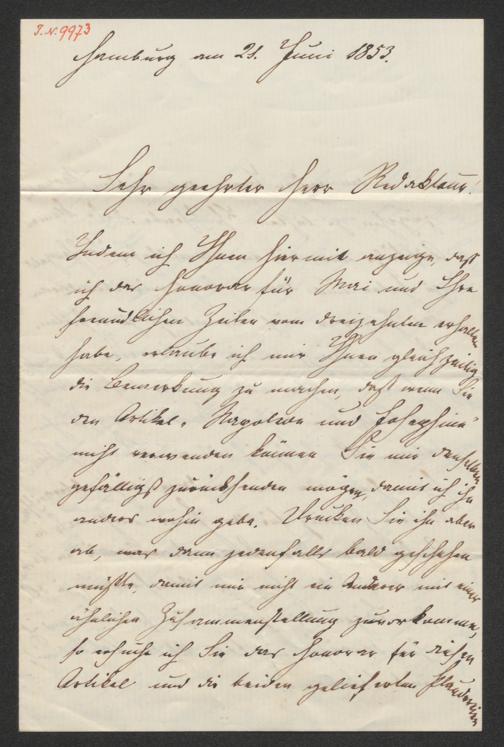 J.N. 9973
Hamburg am 21. Juni 1853.
Sehr geehrter Herr Redakteur!
Indem ich Ihnen hiermit anzeige, daß
ich das Honorar für Mai und Ihre
freundlichen Zeilen vom dreizehnten erhalten
habe, erlaube ich mir Ihnen gleichzeitig
die Bemerkung zu machen, daß wenn Sie
den Artikel „Napoleon und Josephine“
nicht verwenden können Sie mir denselben
gefälligst zurücksenden mögen, damit ich ihn
anders wohin gebe. Drucken Sie ihn aber
ab, was dann jedenfalls bald geschehen
müßte, damit mir nicht ein Anderer mit einer
ähnlichen Zusammenstellung zuvorkomme,
so ersuche ich Sie das Honorar für diesen
Artikel und die beiden gelieferten Plaudereien